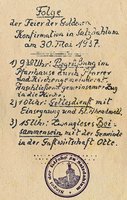 Folge
der Feier der Goldenen
Konfirmation in Salzdahlum
am 30. Mai 1937.
1) 9 3/4 Uhr: Begrüßung im
Pfarrhause durch Pfarrer
und Kirchengemeinderat.
Anschließend gemeinsamer Zug
in die Kirche.
2) 10 Uhr: Gottesdienst mit
Einsegnung und hl. Abendmahl.
3) 15 Uhr: Zwangloses Bei-
sammensein mit der Gemeinde
in der Gastwirtschaft Otte.